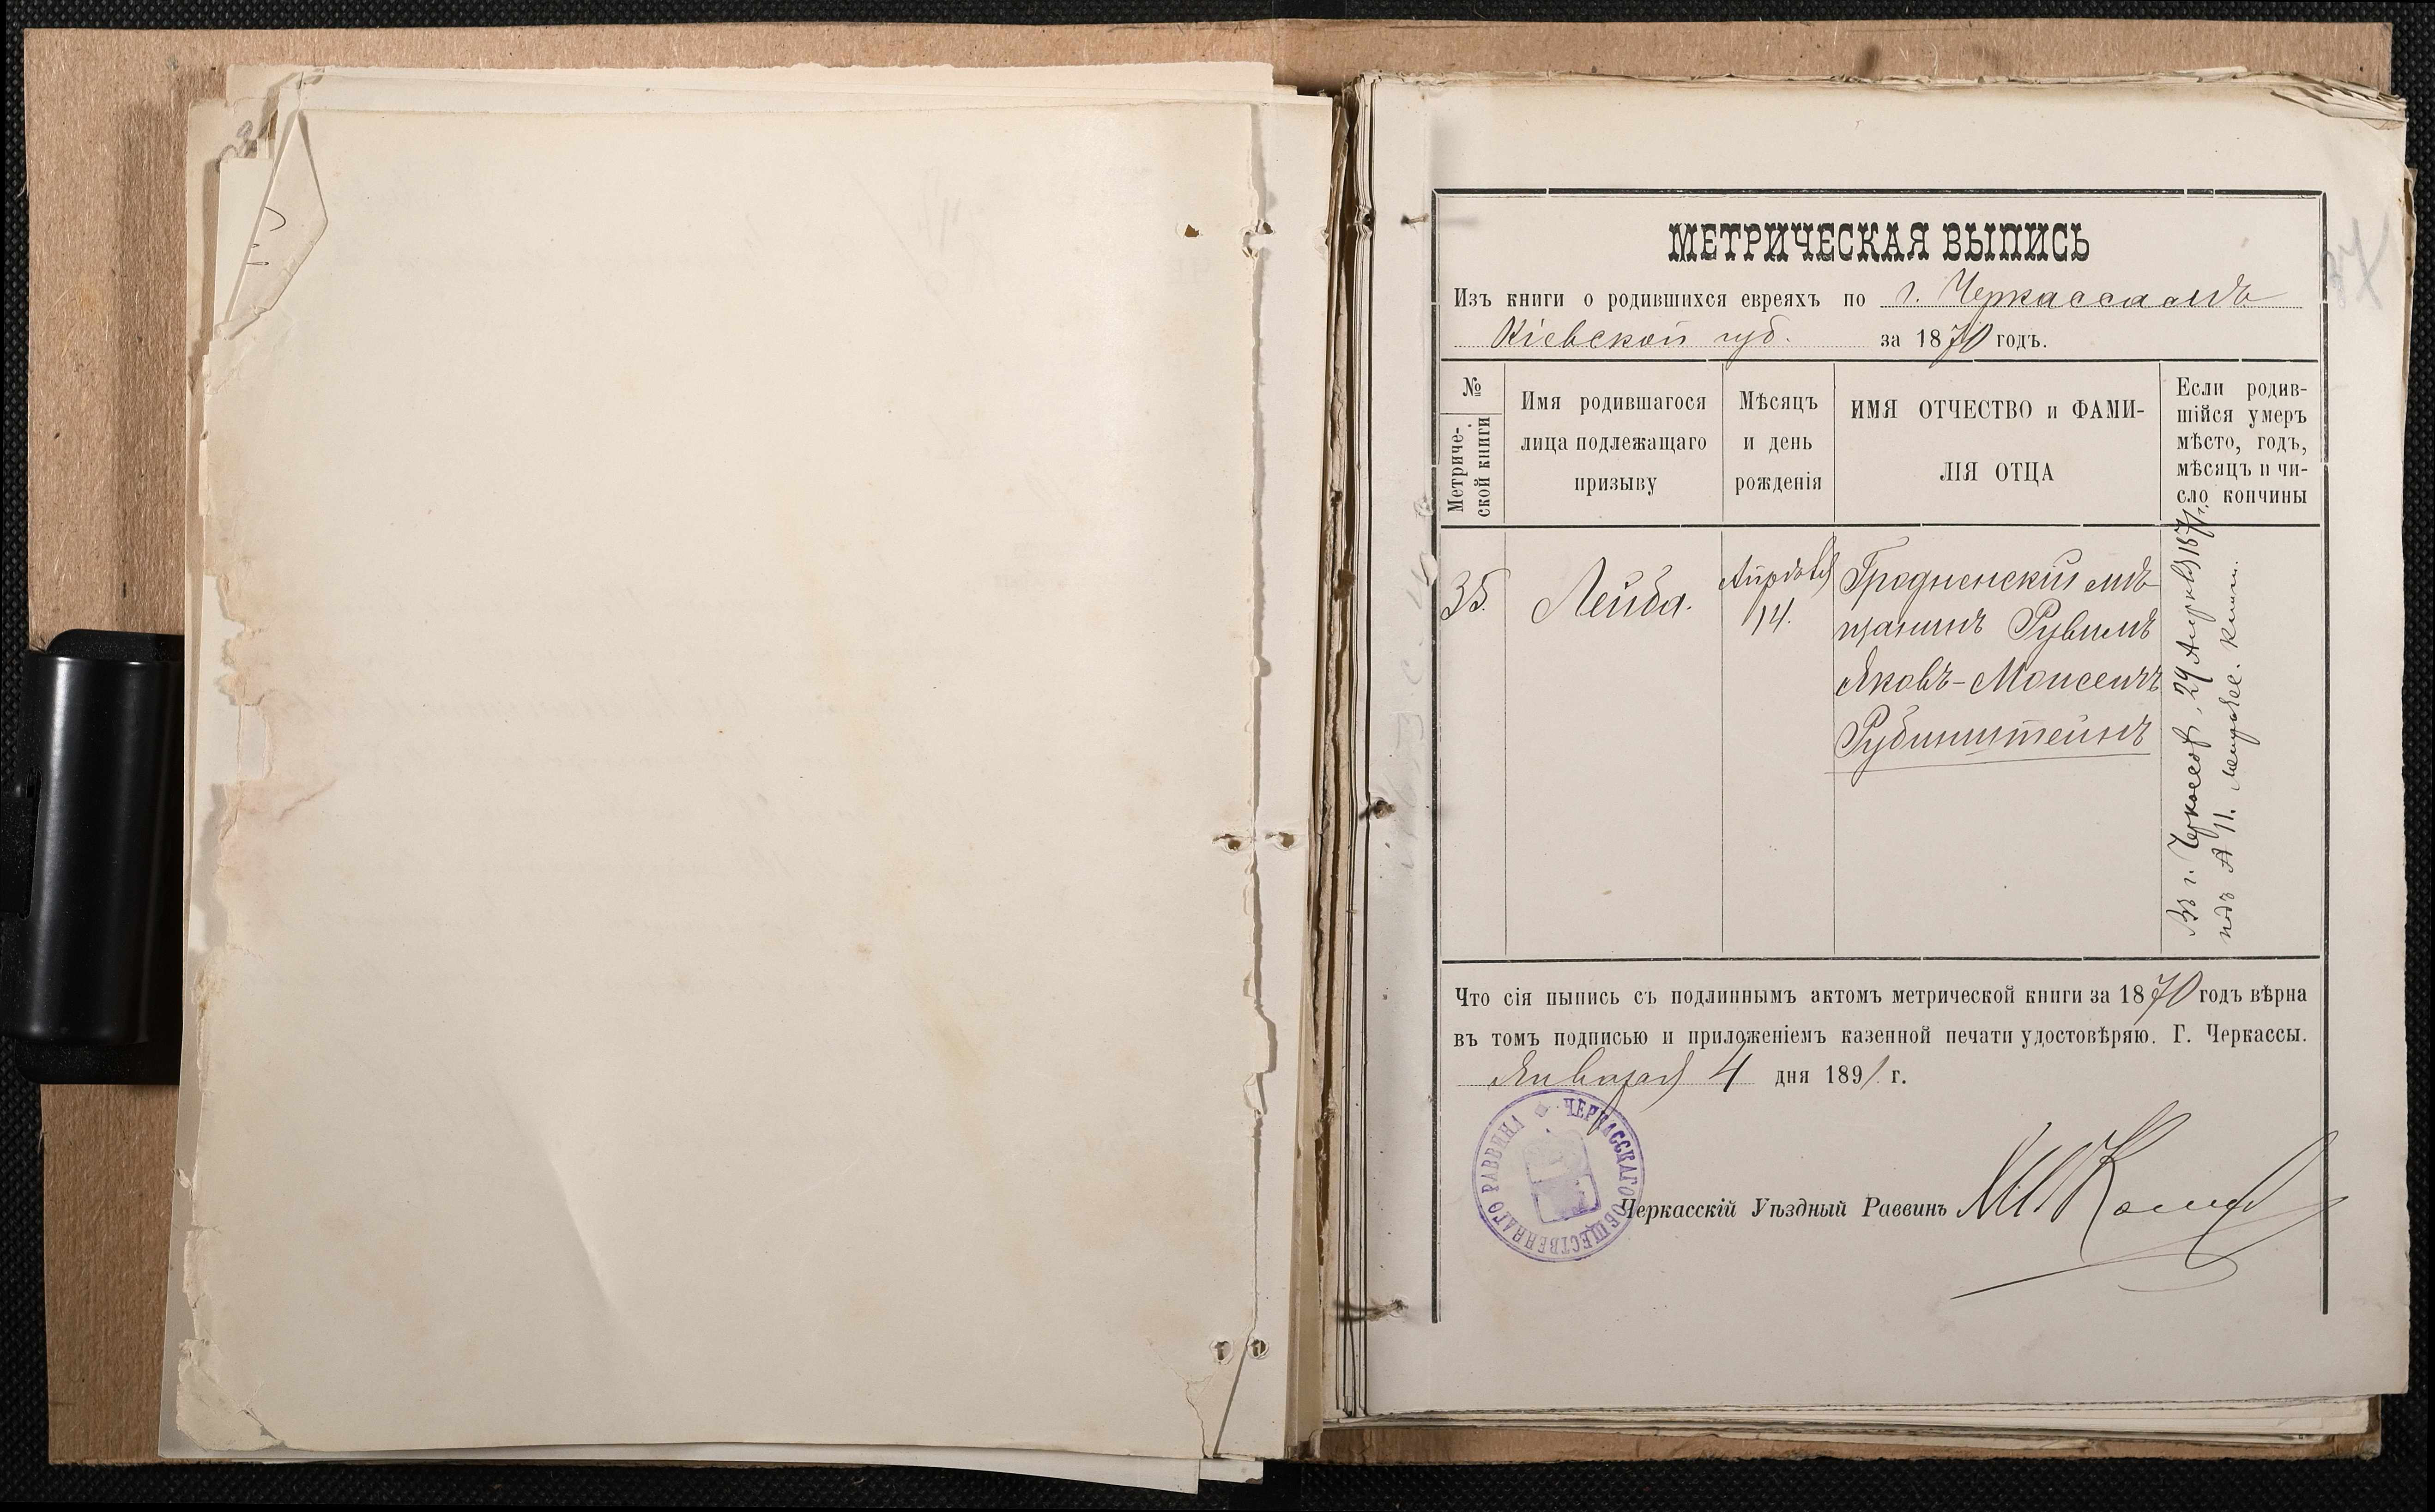 МЕТРИЧЕСКАЯ ВЫПИСЬ
Изъ книги о родившихся евреяхъ по г. Черкассамъ
Кіевской губ. за 1870 годъ.
№
Метриче-
ской книги
Имя родившагося
лица подлежащаго
призыву
Мѣсяцъ
и день
рожденія
ИМЯ ОТЧЕСТВО и ФАМИ-
ЛІЯ ОТЦА
Если родив-
шійся умеръ
мѣсто, годъ,
мѣсяцъ и чи-
сло кончины
35.
Лейба.
Апрѣля
14.
Гродненскій мѣ-
щанинъ Рувимъ
Яковъ-Моисеичъ
Рубинштейнъ
Въ г. Черкассѣ, 29 Апрѣля 1871 г.
подъ № 11. метрическ. книги.
Что сія выпись съ подлиннымъ актомъ метрической книги за 1870 годъ вѣрна
въ томъ подписью и приложеніемъ казенной печати удостовѣряю. Г. Черкассы.
Января 4 дня 1891 г.
ЧЕРКАССКАГО ОБЩЕСТВЕННАГО РАВВИНА
Черкасскій Уѣздный Раввинъ